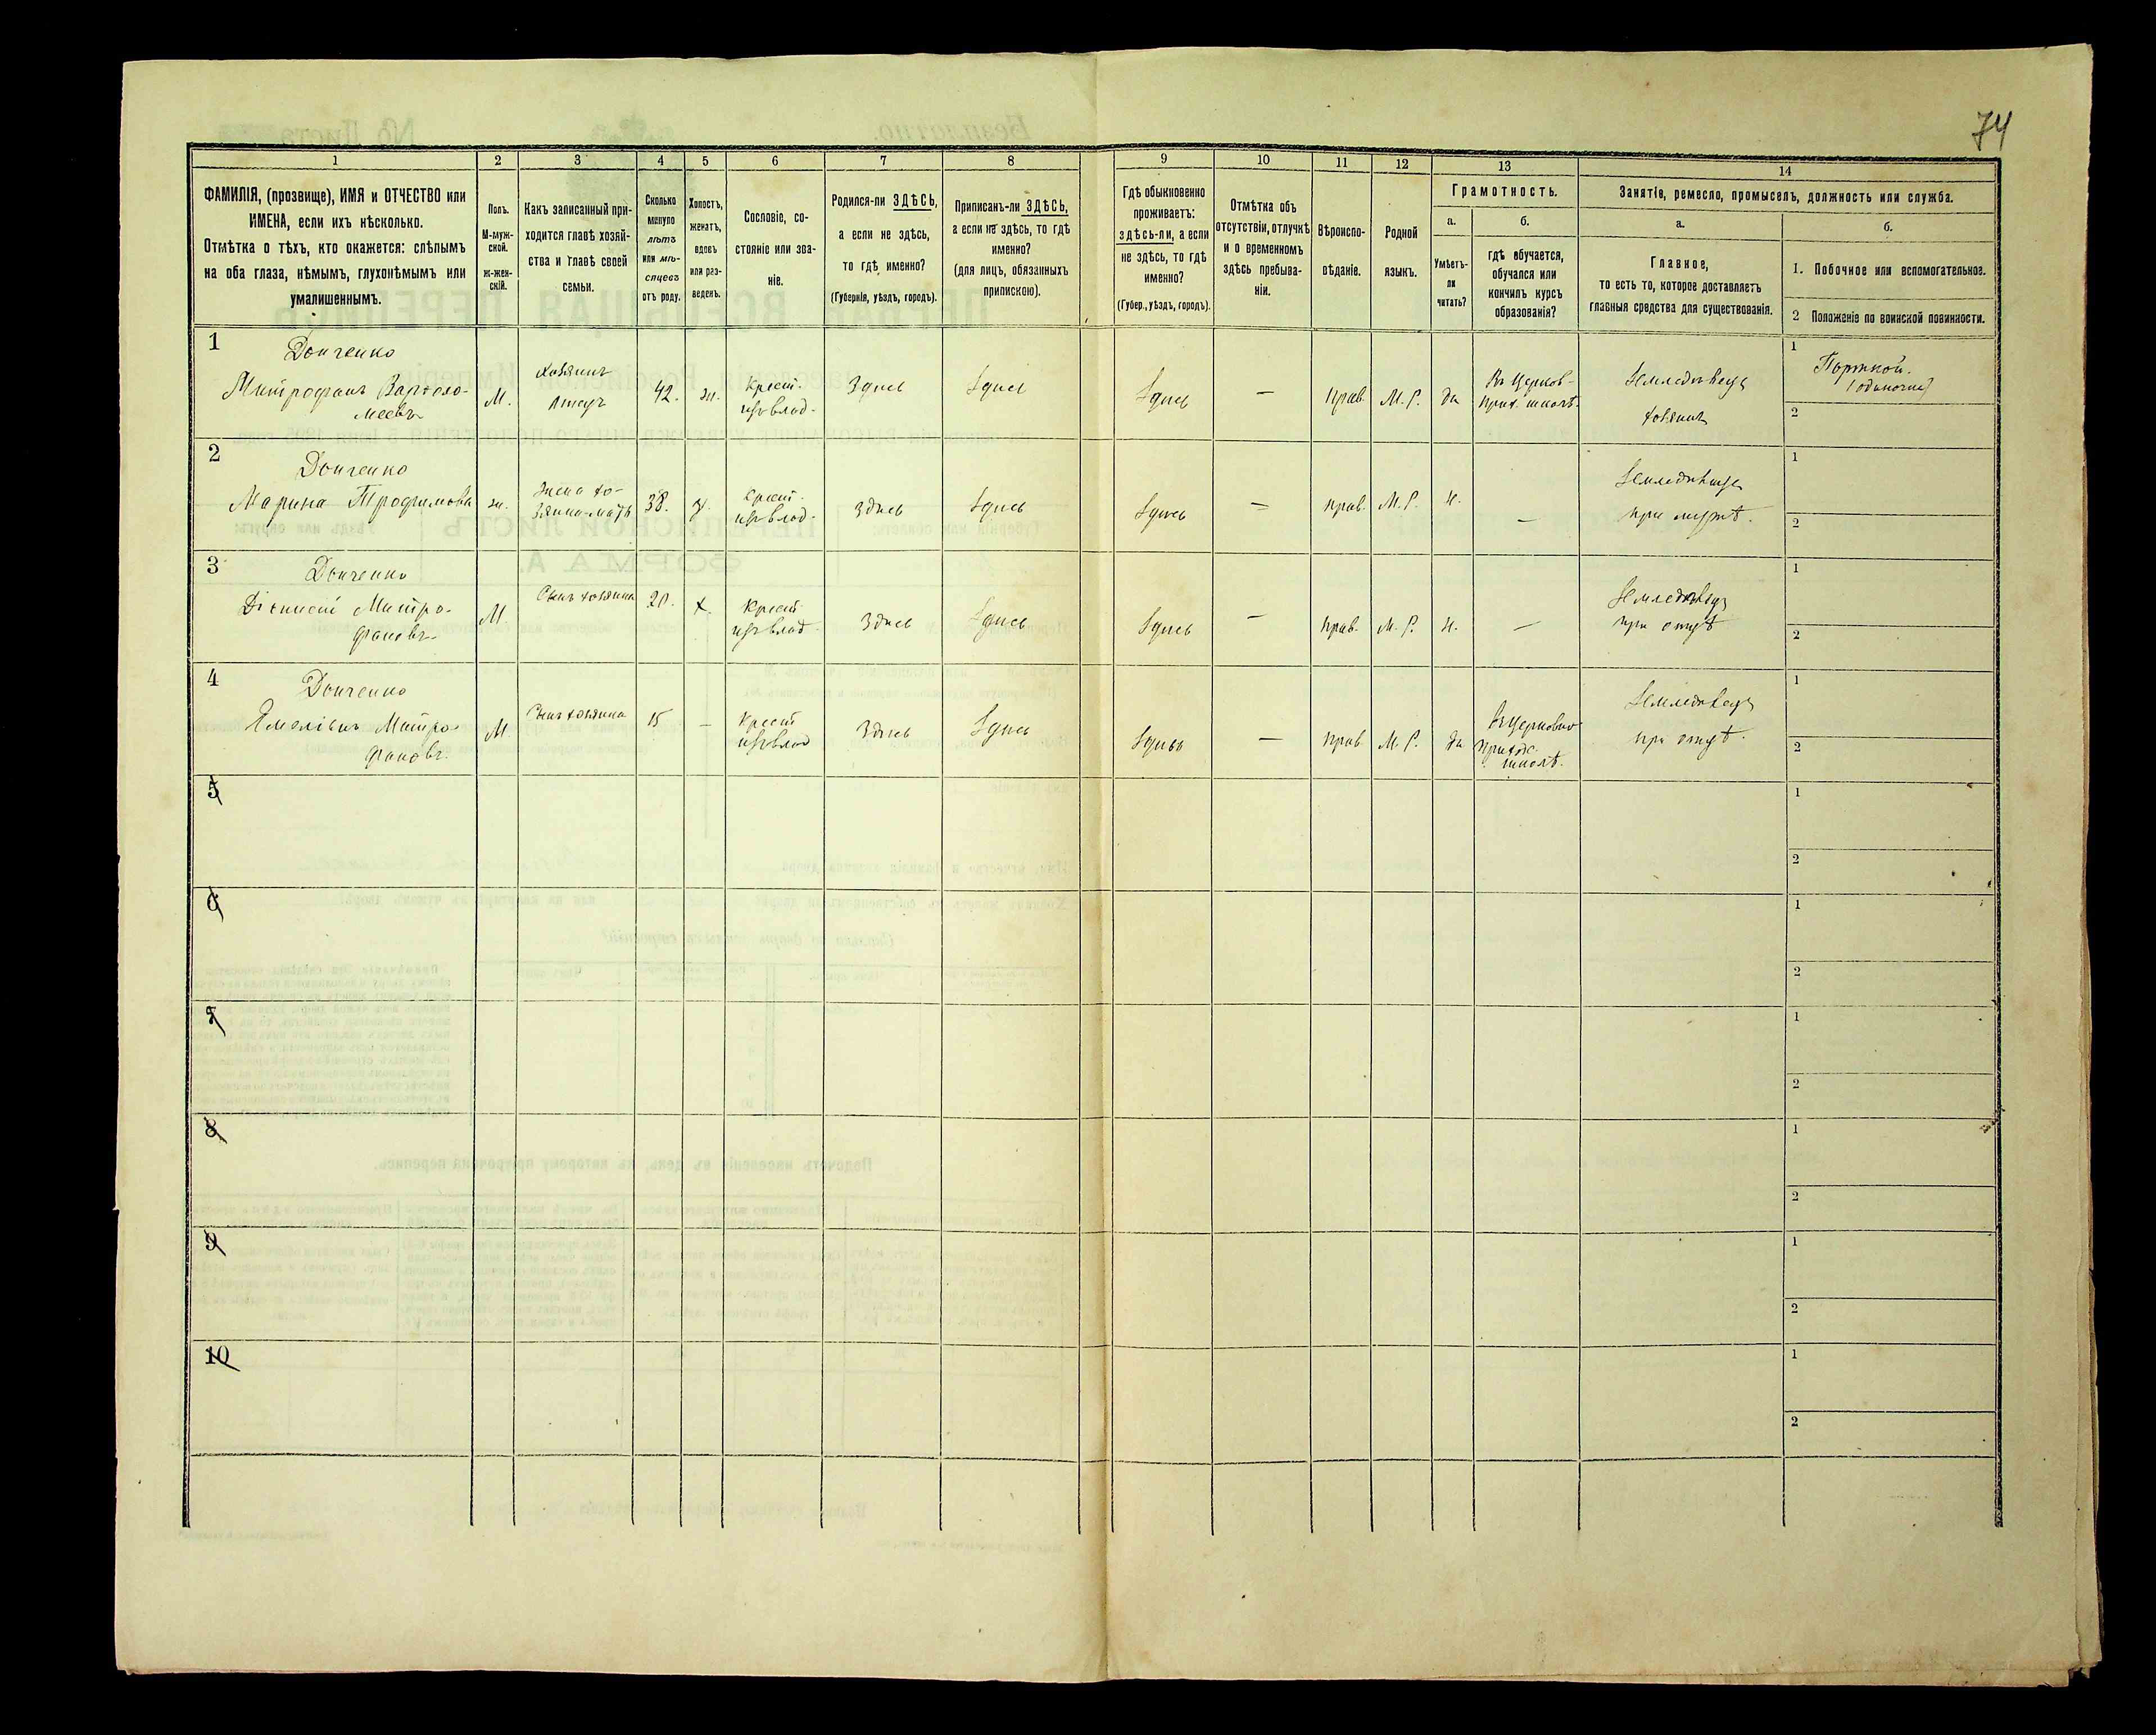 74
1 2 3 4 5 6 7 8 9 10 11 12 13 14
ФАМИЛІЯ, (прозвище), ИМЯ и ОТЧЕСТВО или
ИМЕНА, если ихъ нѣсколько.
Отмѣтка о тѣхъ, кто окажется: слѣпымъ
на оба глаза, нѣмымъ, глухонѣмымъ или
умалишеннымъ.
Полъ.
М-муж-
ской.
ж-жен-
скій.
Какъ записанный при-
ходится главѣ хозяй-
ства и главѣ своей
семьи.
Сколько
минуло
лѣтъ
или мѣ-
сяцевъ
отъ роду.
Холостъ,
женатъ,
вдовъ
или раз-
веденъ.
Сословіе, со-
стояніе или зва-
ніе.
Родился-ли ЗДѢСЬ,
а если не здѣсь,
то гдѣ именно?
(Губернія, уѣздъ, городъ).
Приписанъ-ли ЗДѢСЬ,
а если не здѣсь, то гдѣ
именно?
(для лицъ, обязанныхъ
припискою).
Гдѣ обыкновенно
проживаетъ:
здѣсь-ли, а если
не здѣсь, то гдѣ
именно?
(Губер., уѣздъ, городъ).
Отмѣтка объ
отсутствіи, отлучкѣ
и о временномъ
здѣсь пребыва-
ніи.
Вѣроиспо-
вѣданіе.
Родной
языкъ.
Грамотность.
а.
Умѣетъ-
ли
читать?
б.
гдѣ обучается,
обучался или
кончилъ курсъ
образованія?
Занятіе, ремесло, промыселъ, должность или служба.
а.
Главное,
то есть то, которое доставляетъ
главныя средства для существованія.
б.
1. Побочное или вспомогательное.
2 Положеніе по воинской повинности.
1
Донченко
Митрофанъ Варфоло-
меевъ
М.
хозяинъ
отецъ
42.
ж.
Крест.
изъ влад.
Здѣсь
Здѣсь
Здѣсь
—
Прав.
М. Р.
да
Въ Церков-
прих. школѣ.
Земледѣлецъ
хозяинъ
1
Портной.
(одиночка)
2
2
Донченко
Марина Трофимова
ж.
жена хо-
зяина-мать
38.
з.
Крест.
изъ влад.
Здѣсь
Здѣсь
Здѣсь
—
прав.
М. Р.
н.
—
Земледѣлица
при мужѣ.
1
2
3
Донченко
Діонисій Митро-
фановъ
М.
Сынъ хозяина
20.
х.
Крест
изъ влад.
Здѣсь
Здѣсь
Здѣсь
—
прав.
М. Р.
н.
—
Земледѣлецъ
при отцѣ
1
2
4
Донченко
Емеліанъ Митро-
фановъ.
М
Сынъ хозяина
15
—
Крест
изъ влад
Здѣсь
Здѣсь
Здѣсь
—
прав
М. Р.
да
Въ церковно
приходс.
школѣ.
Земледѣлецъ
при отцѣ.
1
2
5
1
2
6
1
2
7
1
2
8
1
2
9
1
2
10
1
2